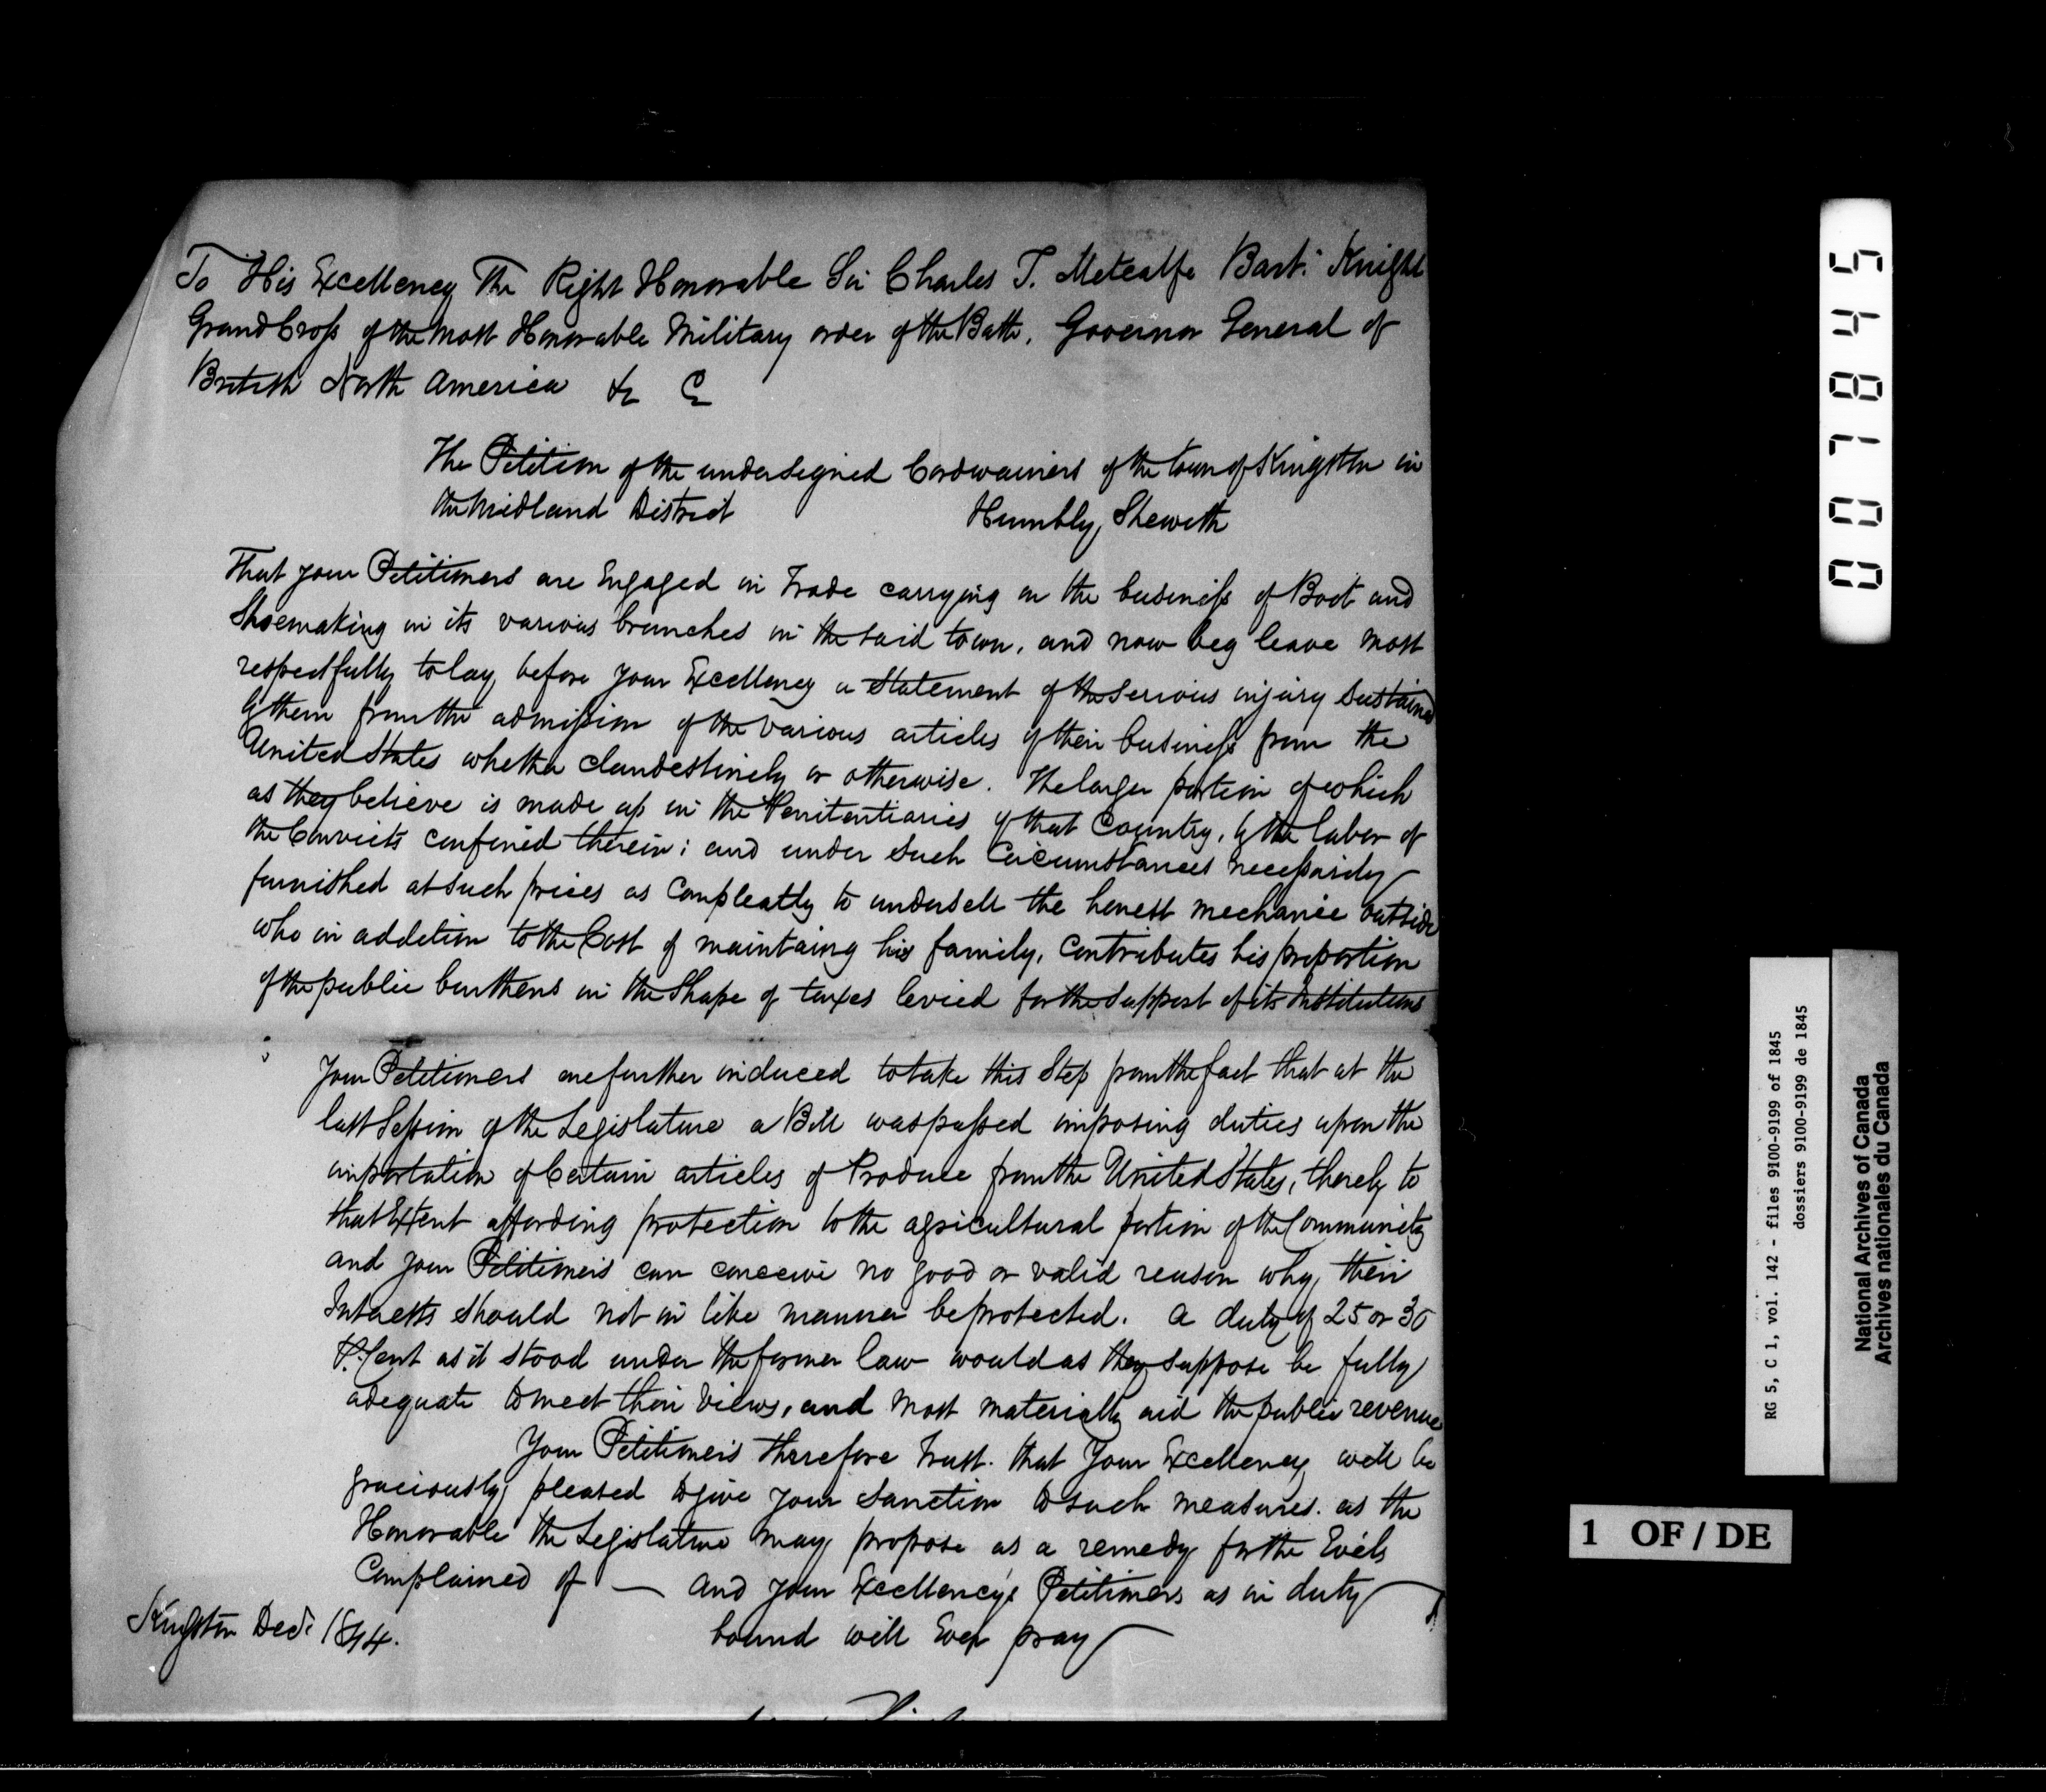 To His Excellency The Right Honorable Sir Charles T. Metcalfe Bart. Knight
Grand Cross of the Most Honorable Military order of the Bath, Governor General of
British North America &c &c
The Petition of the undersigned Cordwainers of the town of Kingston in
the Midland District Humbly Sheweth
That your Petitioners are Engaged in Trade carrying on the business of Boot and
Shoemaking in its various branches in the said town, and now beg leave most
respectfully to lay before your Excellency a Statement of the serious injury sustained
by them from the admission of the various articles of their business from the
United States whether clandestinely or otherwise. The larger portion of which
as they believe is made up in the Penitentiaries of that Country, by the labor of
the Convicts confined therein; and under such Circumstances necessarily
furnished at such prices as Compleatly to undersell the honest mechanic outside
who in addition to the Cost of maintaing his family, Contributes his proportion
of the public burthens in the Shape of taxes levied for the Support of its Institutions
Your Petitioners are further induced to take this Step from the fact that at the
last Session of the Legislature a Bill was passed imposing duties upon the
importation of Certain articles of Produce from the United States, thereby to
that Extent affording protection to the agricultural portion of the Community
and your Petitioners can conceive no good or valid reason why their
Interests should not in like manner be protected. A duty of 25 or 30
P. Cent as it stood under the former law would as they suppose be fully
adequate to meet their Views, and most materially aid the public revenue
Your Petitioners therefore trust. that Your Excellency will be
graciously pleased to give your sanction to such measures. as the
Honorable the Legislature may propose as a remedy for the Evils
Complained of — And your Excellency's Petitioners as in duty
bound will Ever pray
Kingston Decr 1844.
007845
RG 5, C 1, vol. 142 - files 9100-9199 of 1845
dossiers 9100-9199 de 1845
National Archives of Canada
Archives nationales du Canada
1 OF / DE